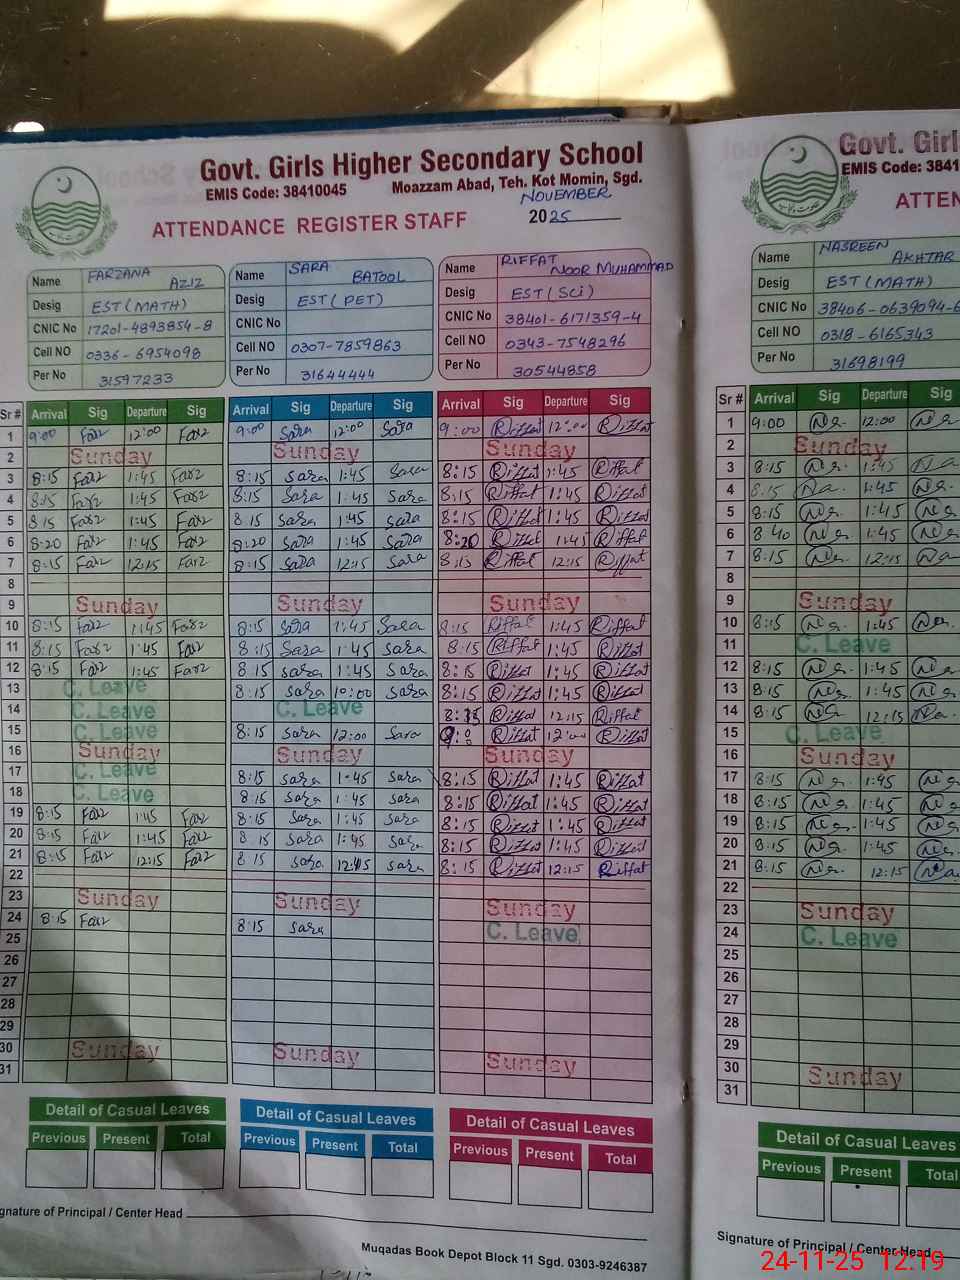 Govt. Girls Higher Secondary School
EMIS Code: 38410045 Moazzam Abad, Teh. Kot Momin, Sgd.
NOVEMBER
ATTENDANCE REGISTER STAFF 2025
Name FARZANA AZIZ
Desig EST (MATH)
CNIC No 17201-4893854-8
Cell NO 0336-6954098
Per No 31597233
Name SARA BATOOL
Desig EST (PET)
CNIC No
Cell NO 0307-7859863
Per No 31644444
Name RIFFAT NOOR MUHAMMAD
Desig EST (Sci)
CNIC No 38401-6171359-4
Cell NO 0343-7548296
Per No 30544858
Sr # Arrival Sig Departure Sig Arrival Sig Departure Sig Arrival Sig Departure Sig
1 9:00 Farz 12:00 Farz 9:00 Sara 12:00 Sara 9:00 Riffat 12:00 Riffat
2 Sunday Sunday Sunday
3 8:15 Farz 1:45 Farz 8:15 Sara 1:45 Sara 8:15 Riffat 1:45 Riffat
4 8:15 Farz 1:45 Farz 8:15 Sara 1:45 Sara 8:15 Riffat 1:45 Riffat
5 8:15 Farz 1:45 Farz 8:15 Sara 1:45 Sara 8:15 Riffat 1:45 Riffat
6 8:20 Farz 1:45 Farz 8:20 Sara 1:45 Sara 8:20 Riffat 1:45 Riffat
7 8:15 Farz 12:15 Farz 8:15 Sara 12:15 Sara 8:15 Riffat 12:15 Riffat
8
9 Sunday Sunday Sunday
10 8:15 Farz 1:45 Farz 8:15 Sara 1:45 Sara 8:15 Riffat 1:45 Riffat
11 8:15 Farz 1:45 Farz 8:15 Sara 1:45 Sara 8:15 Riffat 1:45 Riffat
12 8:15 Farz 1:45 Farz 8:15 Sara 1:45 Sara 8:15 Riffat 1:45 Riffat
13 C. Leave 8:15 Sara 10:00 Sara 8:15 Riffat 1:45 Riffat
14 C. Leave C. Leave 8:15 Riffat 12:15 Riffat
15 C. Leave 8:15 Sara 12:00 Sara 9:0 Riffat 12:00 Riffat
16 Sunday Sunday Sunday
17 C. Leave 8:15 Sara 1:45 Sara 8:15 Riffat 1:45 Riffat
18 C. Leave 8:15 Sara 1:45 Sara 8:15 Riffat 1:45 Riffat
19 8:15 Farz 1:45 Farz 8:15 Sara 1:45 Sara 8:15 Riffat 1:45 Riffat
20 8:15 Farz 1:45 Farz 8:15 Sara 1:45 Sara 8:15 Riffat 1:45 Riffat
21 8:15 Farz 12:15 Farz 8:15 Sara 12:15 Sara 8:15 Riffat 12:15 Riffat
22
23 Sunday Sunday Sunday
24 8:15 Farz 8:15 Sara C. Leave
25
26
27
28
29
30 Sunday Sunday Sunday
31
Detail of Casual Leaves Detail of Casual Leaves Detail of Casual Leaves
Previous Present Total Previous Present Total Previous Present Total
Signature of Principal / Center Head
Muqadas Book Depot Block 11 Sgd. 0303-9246387
Govt. Girls
EMIS Code: 3841
ATTEN
Name NASREEN AKHTAR
Desig EST (MATH)
CNIC No 38406-0639094-6
Cell NO 0318-6165343
Per No 31698199
Sr # Arrival Sig Departure Sig
1 9:00 12:00
2 Sunday
3 8:15 1:45
4 8:15 1:45
5 8:15 1:45
6 8:40 1:45
7 8:15 12:15
8
9 Sunday
10 8:15 1:45
11 C. Leave
12 8:15 1:45
13 8:15 1:45
14 8:15 12:15
15 C. Leave
16 Sunday
17 8:15 1:45
18 8:15 1:45
19 8:15 1:45
20 8:15 1:45
21 8:15 12:15
22
23 Sunday
24 C. Leave
25
26
27
28
29
30 Sunday
31
Detail of Casual Leaves
Previous Present Total
Signature of Principal / Center Head
24-11-25 12:19